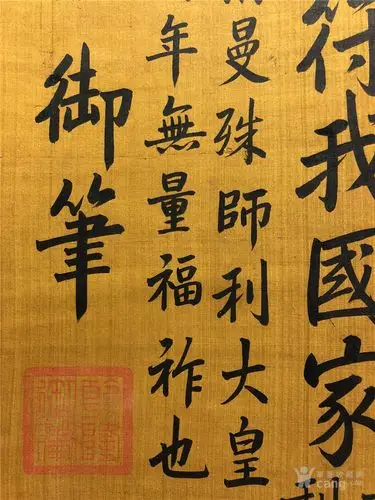 符我國家
曼殊師利大皇
年無量福祚也
御筆
cang.com